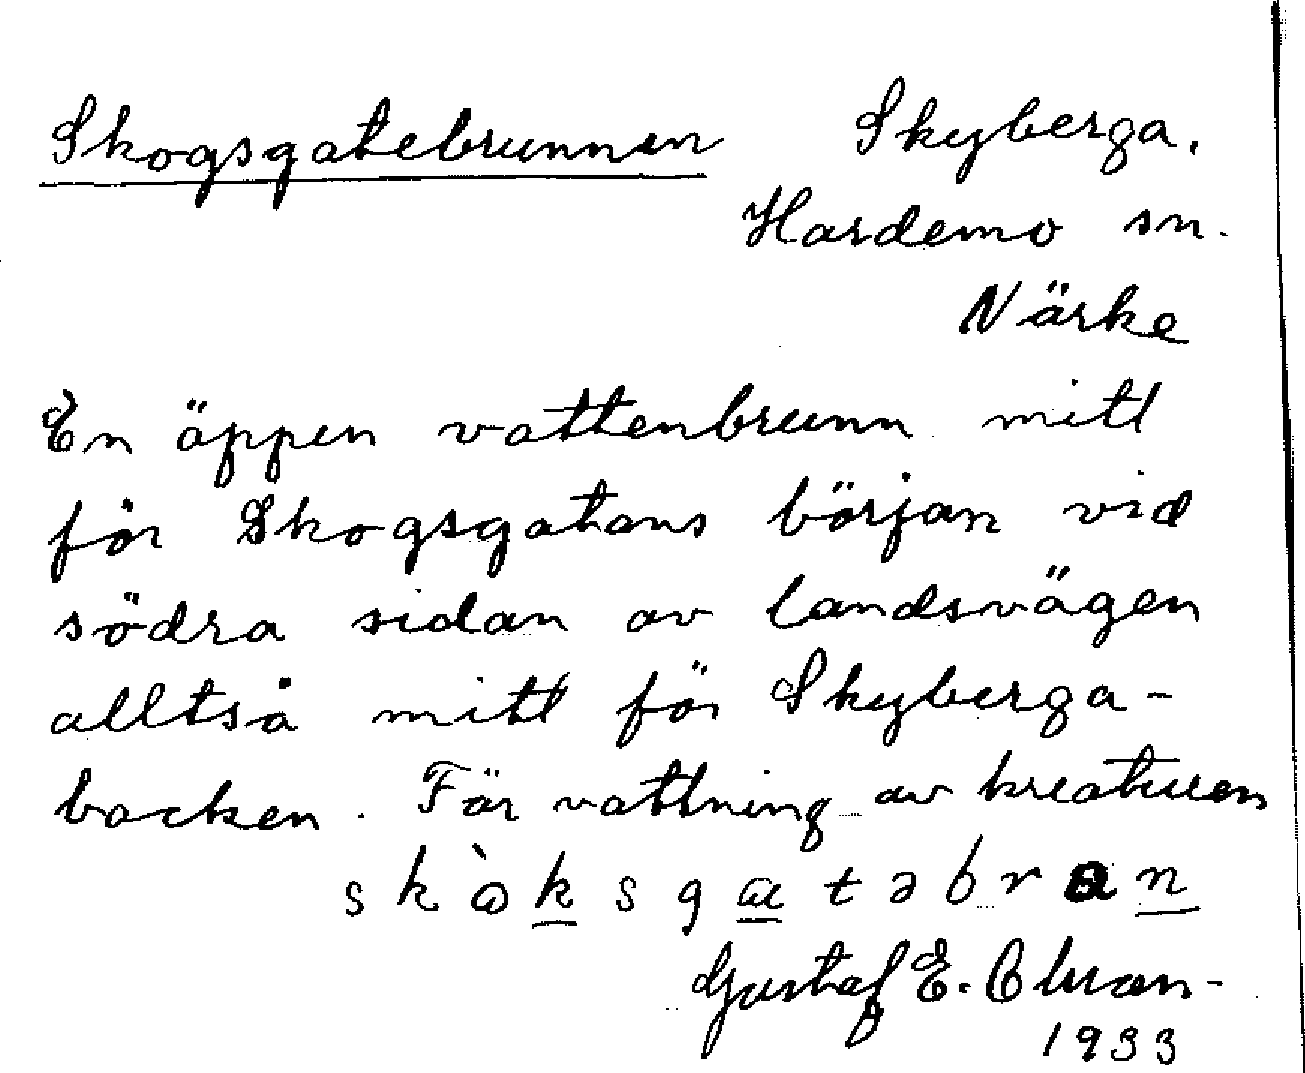 Skogsgatebrunnen Skyberga.
Hardemo sn.
Närke
En äppen vattenbrunn mitt
för Skogsgatans början vid
södra sidan av landsvägen
alltså mitt för Skyberga-
backen. För vattning av kreaturen
Gustaf E.
1933